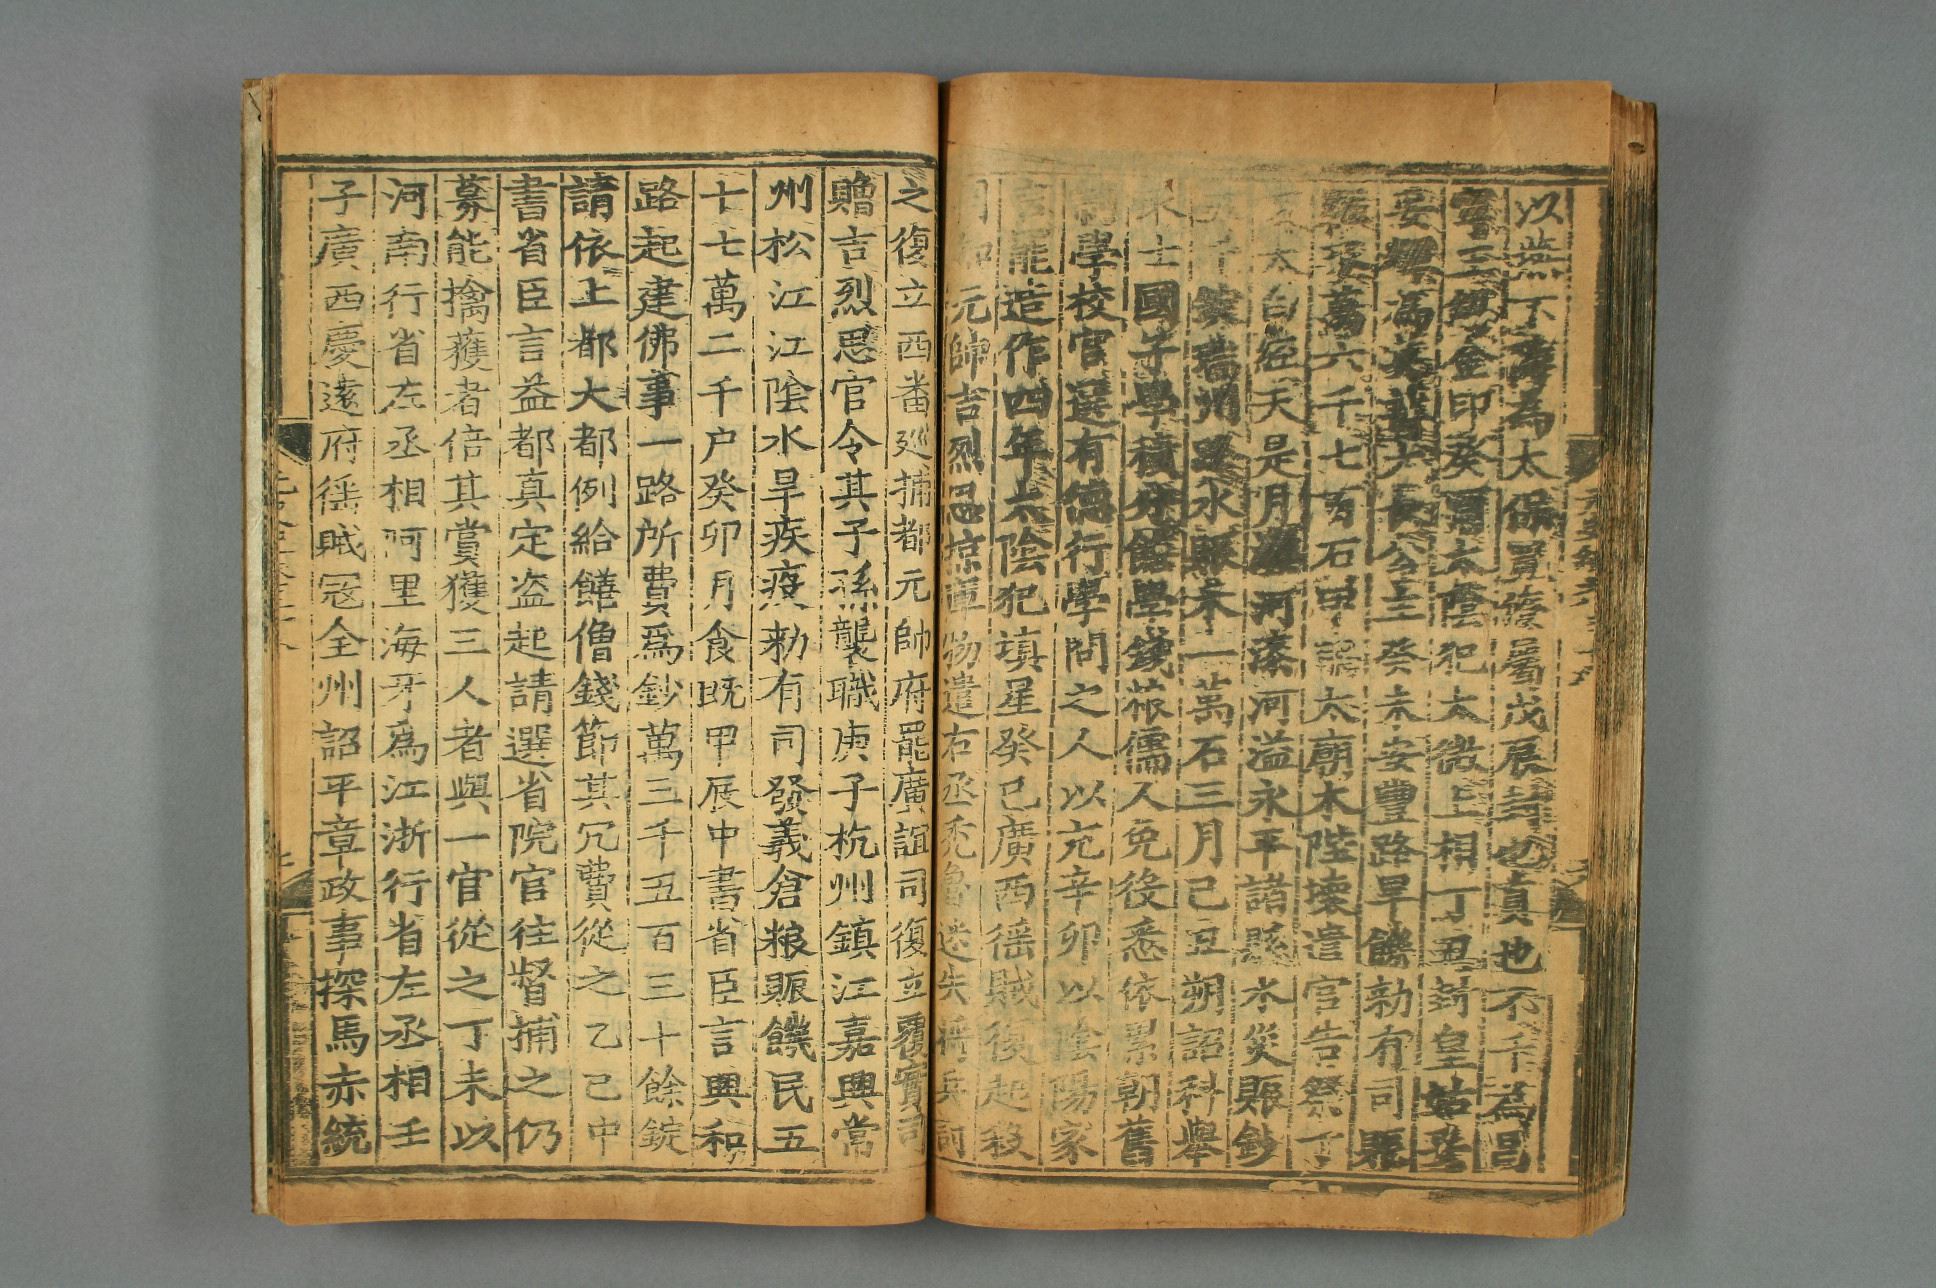 以燕不
為太保
屬戊辰封也真也不千為昌
寧王鍍金印癸
太陰犯太微上相丁丑封皇姑
大長公主癸未安豐路旱饑勑有司賑
萬六千七百石甲
太廟木陛壞遣官告祭丁
太白經天是月
河溢永平諸縣水災賑鈔
千錠瑞州路水賑米一萬石三月己丑朔詔科舉
士國子學積分膳學錢粮儒人免役悉依累朝舊
學校官選有德行學問之人以充辛卯以陰陽家
言罷造作四年太陰犯填星癸巳廣西徭賊復起殺
同知元帥吉烈思掠庫物遣右丞禿魯迷失
之復立西番廵捕都元帥府罷廣誼司復立覆實司
贈吉烈思官令其子孫襲職庚子杭州鎮江嘉興常
州松江江陰水旱疾疫勑有司發義倉粮賑饑民五
十七萬二千户癸卯月食既甲辰中書省臣言興和
路起建佛事一路所費爲鈔萬三千五百三十餘錠
請依上都大都例給饍僧錢節其冗費從之乙巳中
書省臣言益都真定盗起請選省院官往督捕之仍
募能擒獲者倍其賞獲三人者與一官從之丁未以
河南行省左丞相阿里海牙爲江浙行省左丞相壬
子廣西慶遠府徭賊冦全州詔平章政事探馬赤統